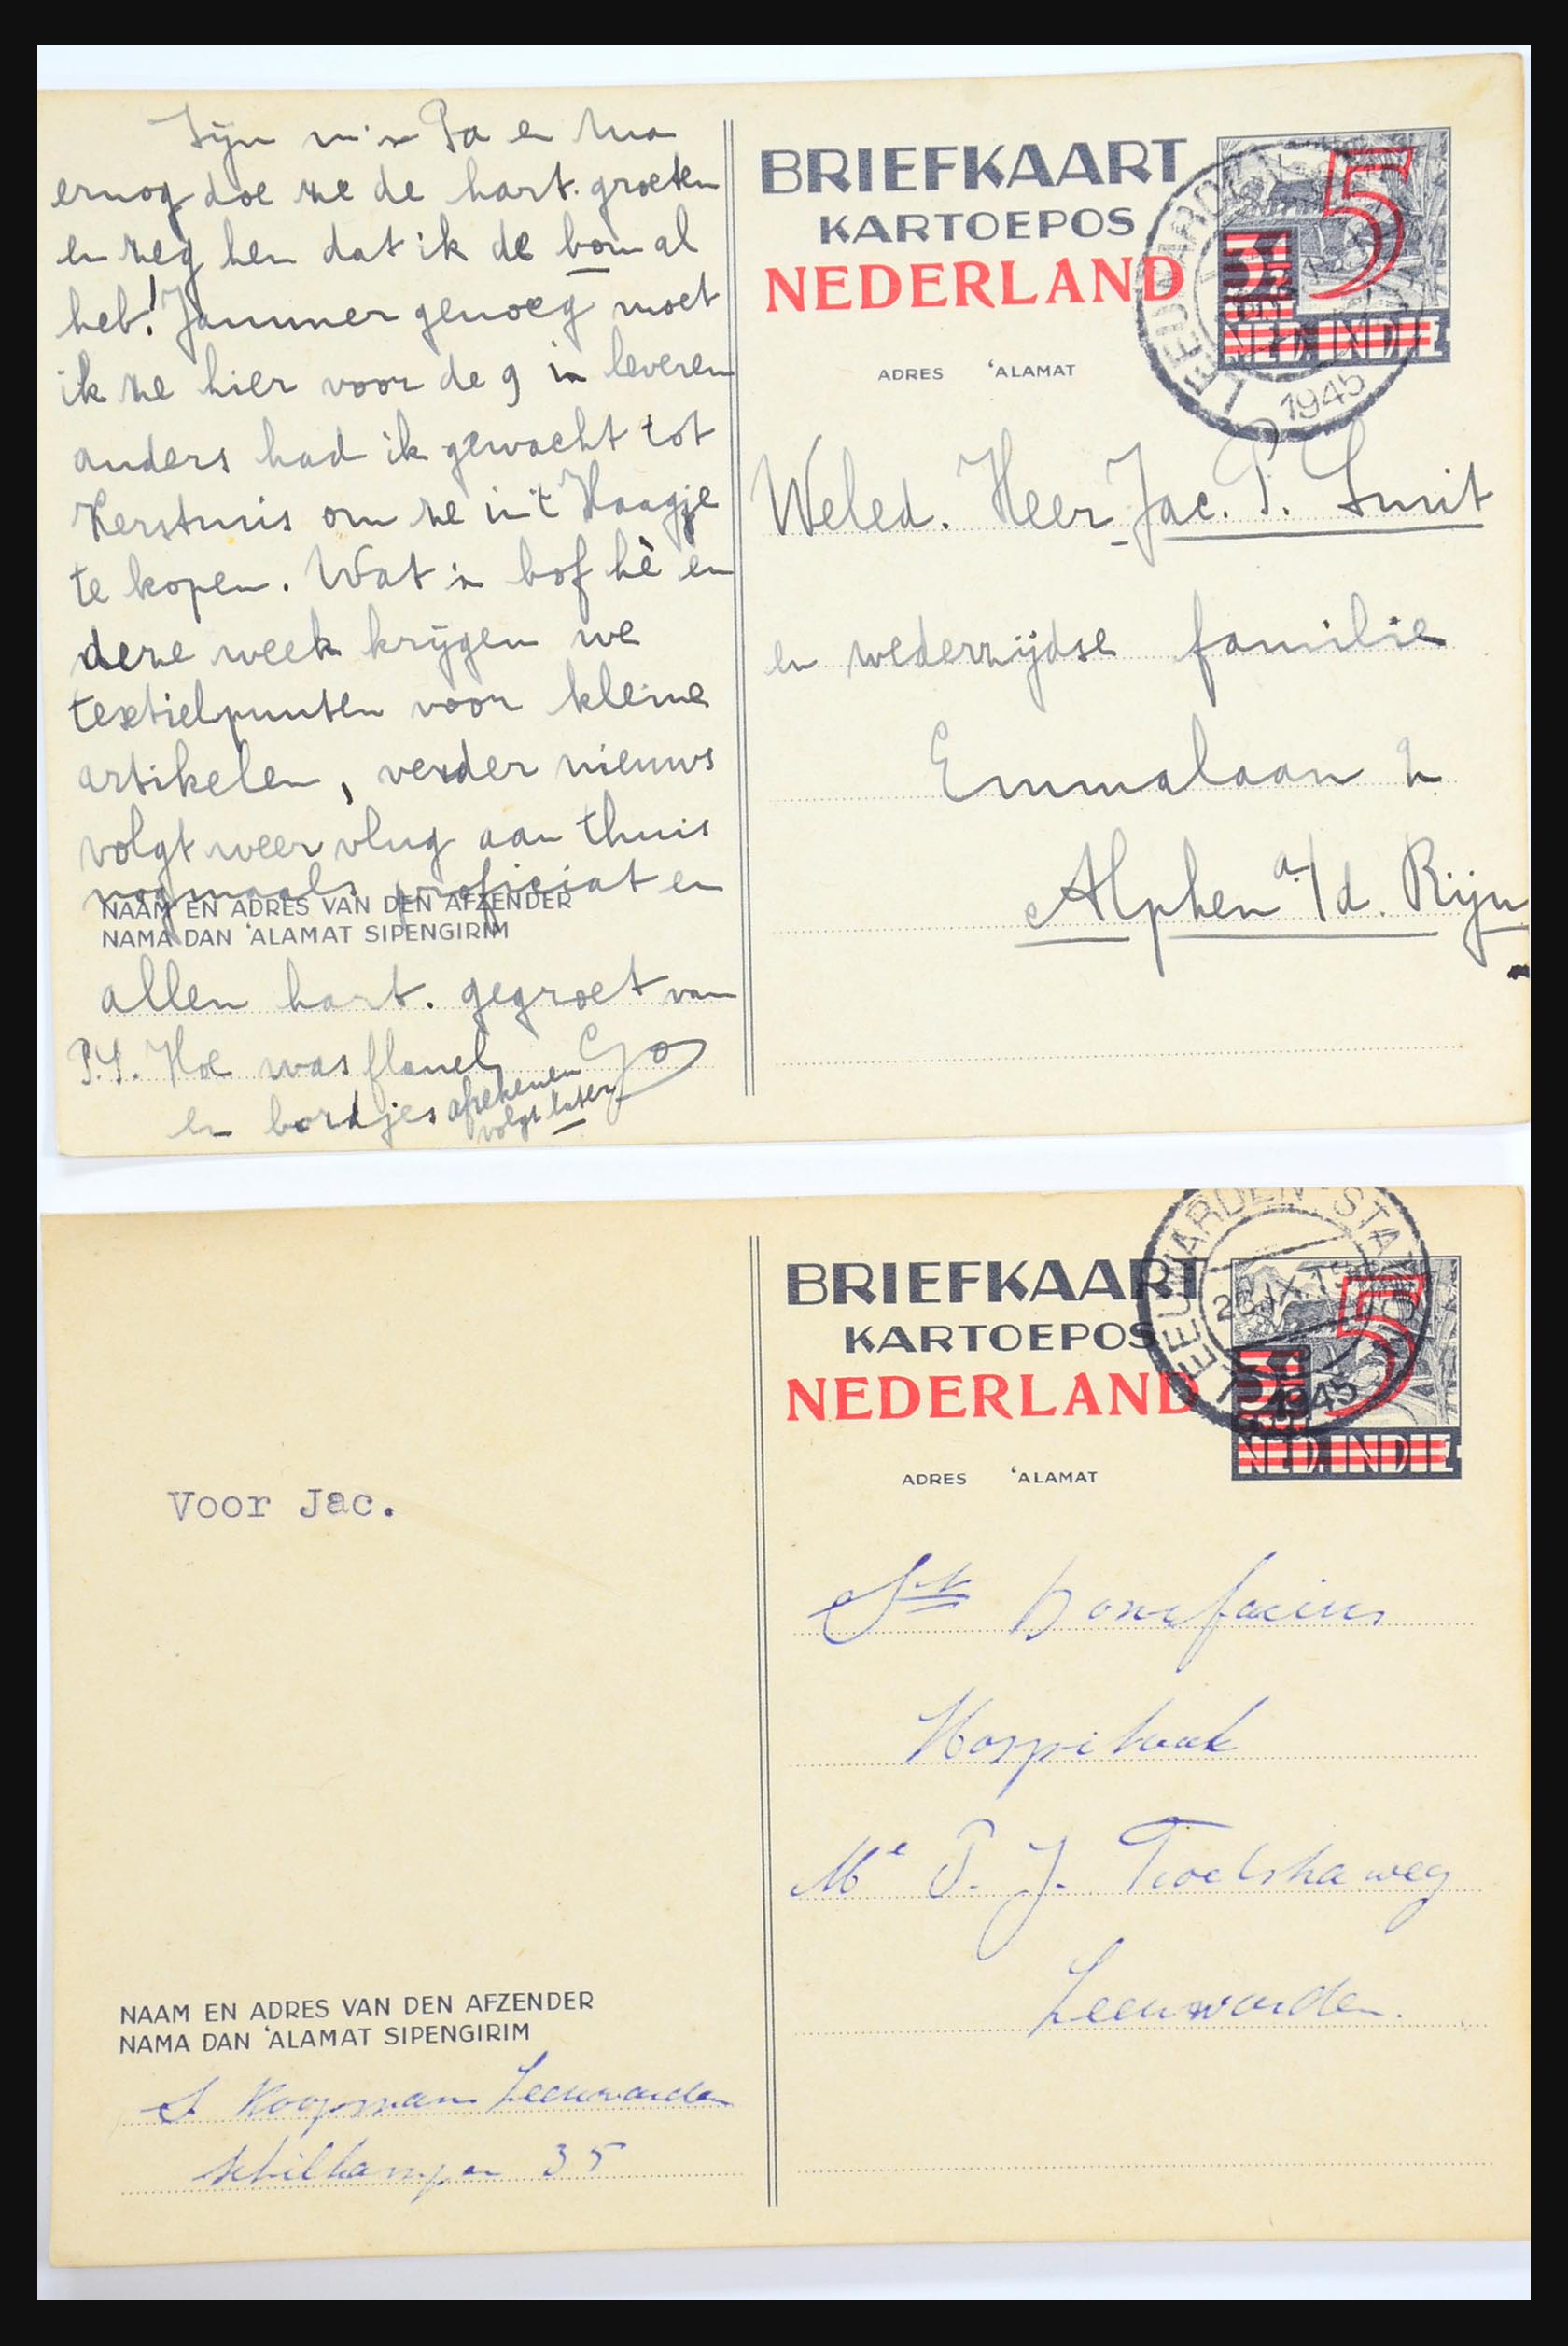 Zijn m'n Pa en Ma
er nog doe ze de hart. groeten
en zeg hen dat ik de bon al
heb! Jammer genoeg moet
ik ze hier voor de 9 in leveren
anders had ik gewacht tot
Kerstmis om ze in 't Haagje
te kopen. Wat 'n bof hè en
deze week krijgen we
textielpunten voor kleine
artikelen, verder nieuws
volgt weer vlug aan thuis
nogmaals proficiat en
NAAM EN ADRES VAN DEN AFZENDER
NAMA DAN 'ALAMAT SIPENGIRIM
allen hart. gegroet van
P.S. Hoe was flanel Go
en bordjes afrekenen
volgt later
BRIEFKAART
KARTOEPOS
NEDERLAND
5
3½
NED. INDIE
LEEUWARDEN
1945
ADRES 'ALAMAT
Weled. Heer Jac. P. Smit
en wederzijdse familie
Emmalaan 2
Alphen a/d. Rijn
BRIEFKAART
KARTOEPOS
NEDERLAND
LEEUWARDEN STA
1945
5
3½
NED. INDIE
ADRES 'ALAMAT
Voor Jac.
St. Bonefacius
Hospitaal
Mr P. J. Troelstraweg
Leeuwarden.
NAAM EN ADRES VAN DEN AFZENDER
NAMA DAN 'ALAMAT SIPENGIRIM
S Koopmans Leeuwarden
Schilkampen 35